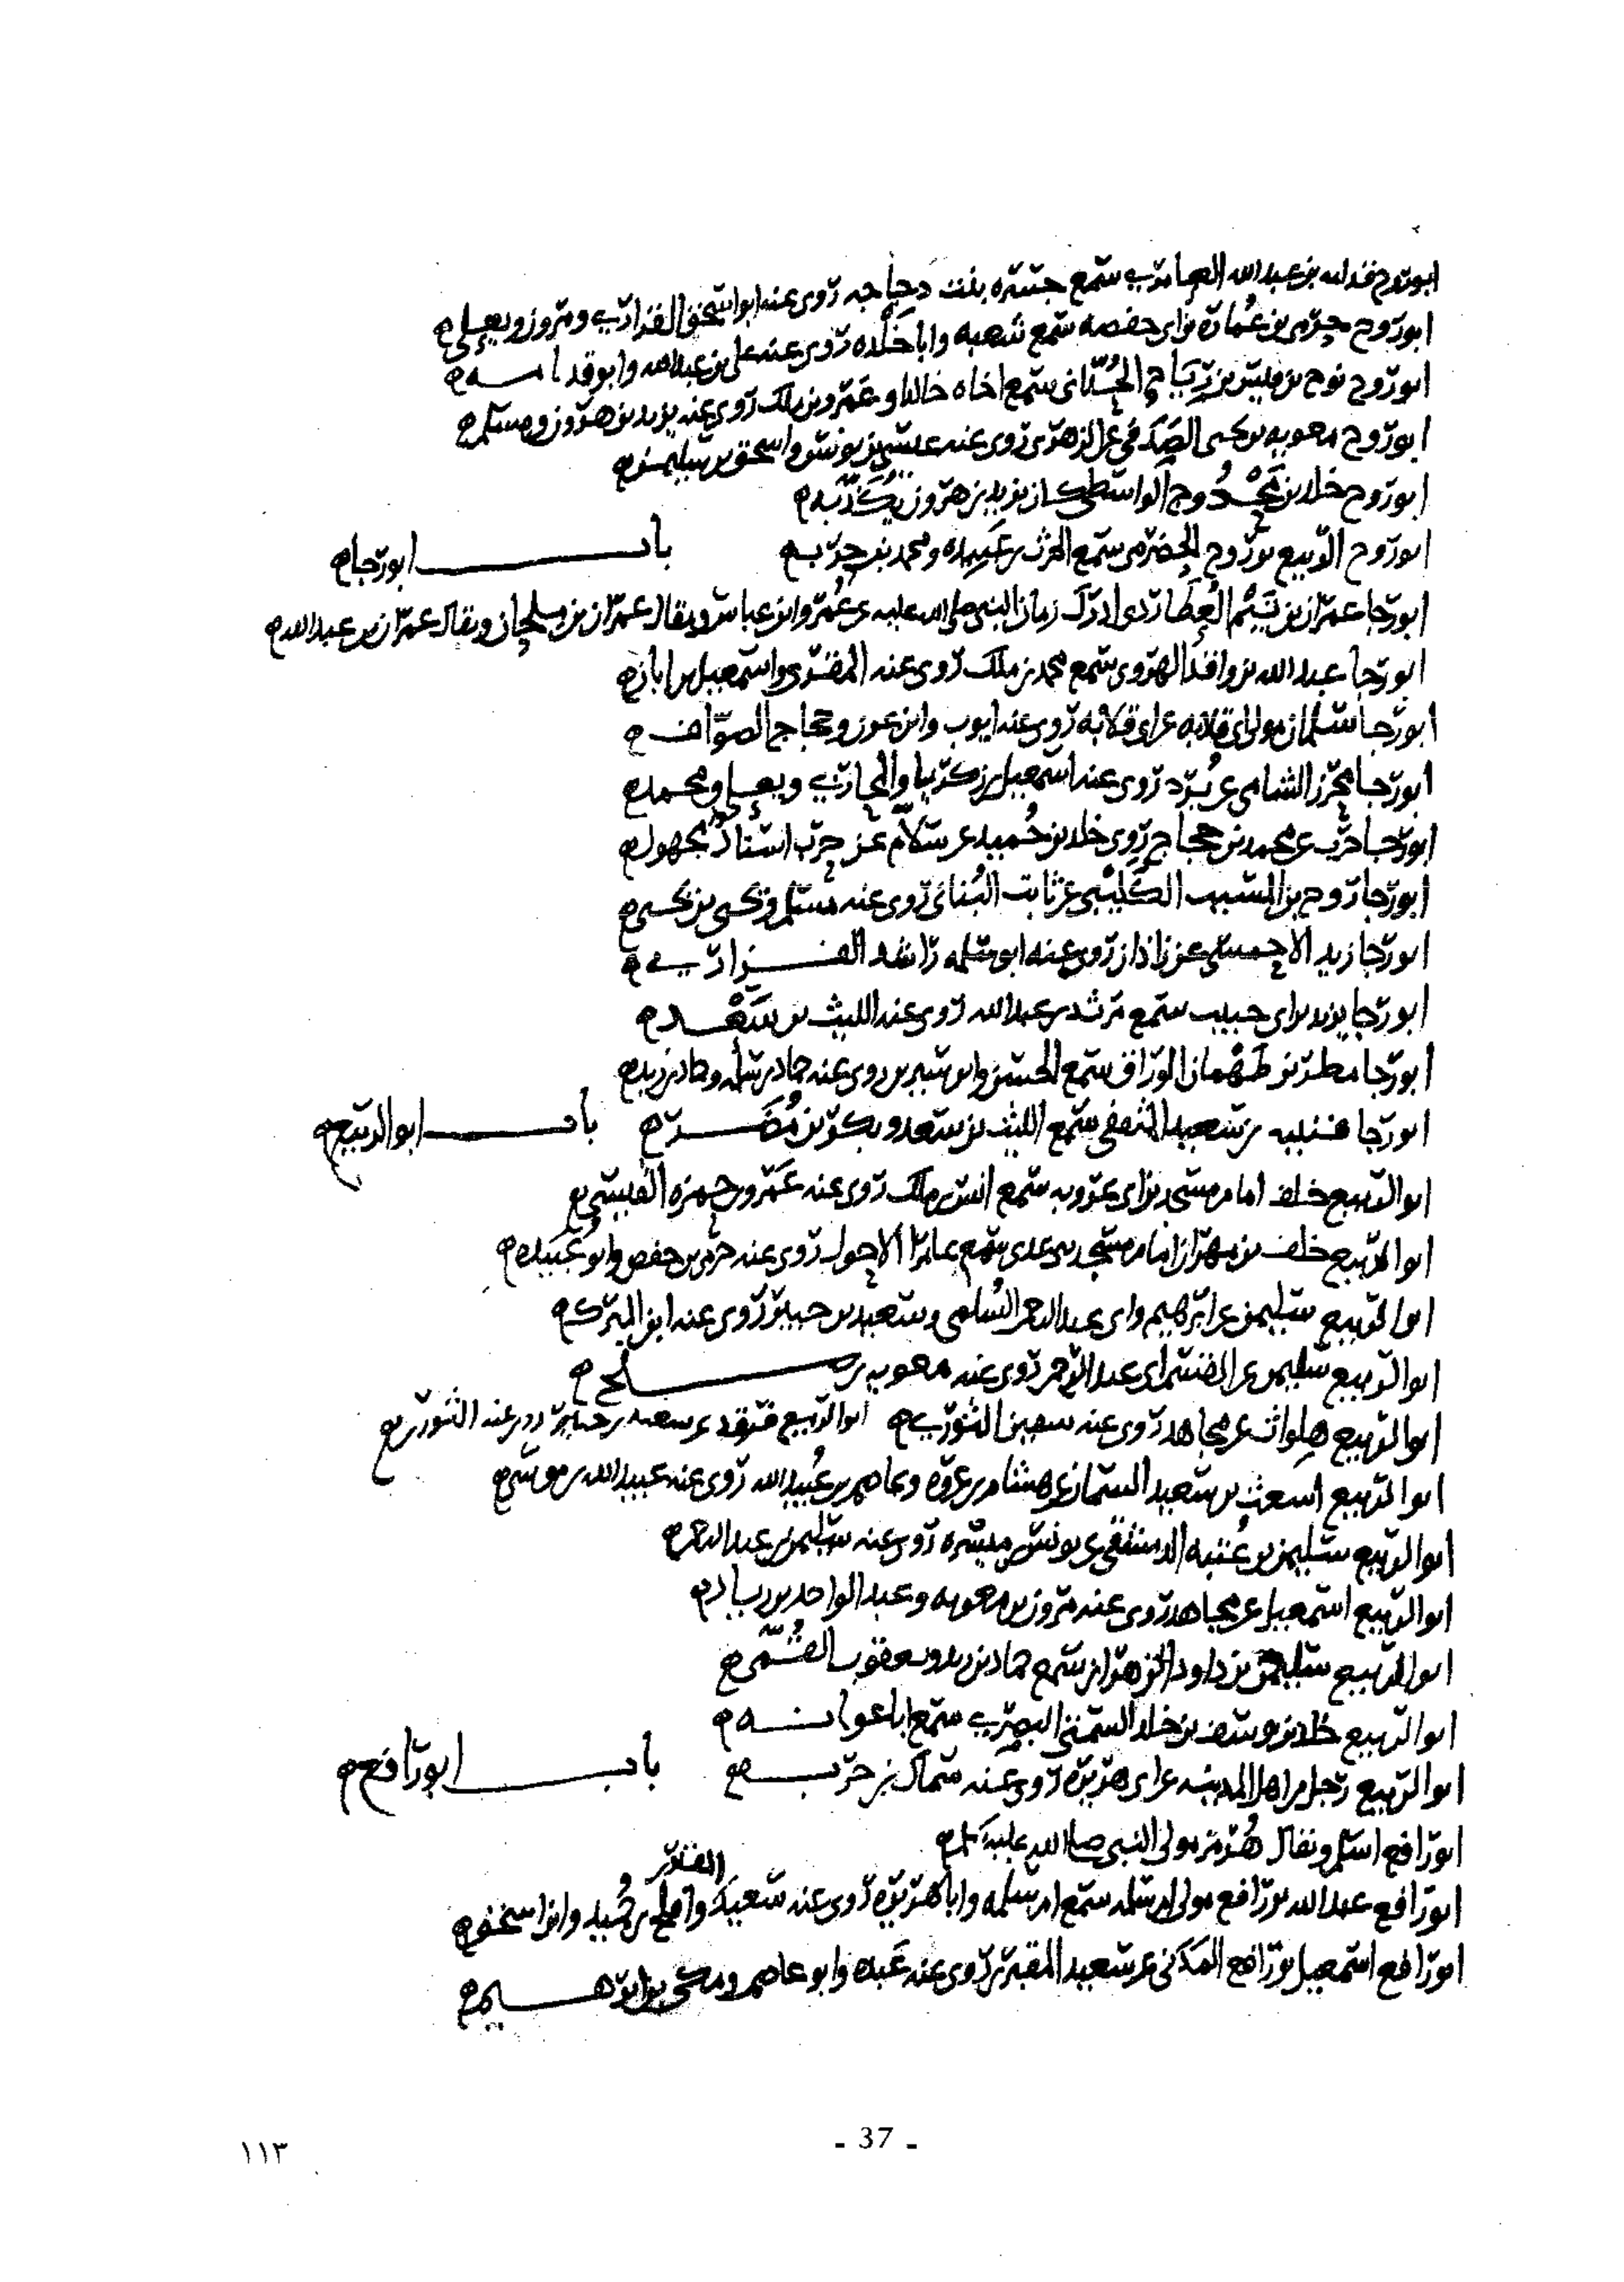 ابو روح قدامه بن عبد الله العامري سمع جسره بنت دجاجه روى عنه ابو اسحق الفزاري ومروان ويعلى
ابو روح حرمي بن عمارة بن ابي حفصه سمع شعبه وابا خلده روى عنه علي بن عبد الله وابو قدامه
ابو روح نوح بن قيس بن رباح الحداني سمع اخاه خالدا وعمرو بن ملك روى عنه يزيد بن هرون ومسلم
ابو روح معويه بن يحيى الصدفي عن الزهري روى عنه عيسى بن يونس واسحق بن سليمن
ابو روح خلد بن محدوج الواسطي كان يزيد بن هرون يكذبه
ابو روح الربيع بن روح الحضرمي سمع الحرث بن عبيده ومحمد بن حرب باب ابو رجا
ابو رجا عمران بن تيم العطاردي ادرك زمان النبي صلى الله عليه عن عمر وابن عباس ويقال عمران بن ملحان ويقال عمران بن عبد الله
ابو رجا عبد الله بن واقد الهروي سمع محمد بن ملك روى عنه المقرئ واسمعيل بن ابان
ابو رجا سلمان مولى ابي قلابه عن ابي قلابه روى عنه ايوب وابن عون وحجاج الصواف
ابو رجا محرز الشامي عن برد روى عنه اسمعيل بن زكريا والمحاربي ويعلى ومحمد
ابو رجا حرب عن محمد بن حجاج روى خلد بن حميد عن سلام عن حرب اسناد مجهول
ابو رجا روح بن المسيب الكليبي عن ثابت البناني روى عنه مسلم ويحيى بن يحيى
ابو رجا زيد الاحمسي عن زاذان روى عنه ابو سلمه راشد الفزاري
ابو رجا يزيد بن ابي حبيب سمع مرثد بن عبد الله روى عنه الليث بن سعد
ابو رجا مطر بن طهمان الوراق سمع الحسن وابن سيرين روى عنه حماد بن سلمه وحماد بن زيد
ابو رجا قتيبه بن سعيد الثقفي سمع الليث بن سعد وبكر بن مضر باب ابو الربيع
ابو الربيع خلف امام مسجد بن ابي عروبه سمع انس بن ملك روى عنه عمرو بن حمزه القيسي
ابو الربيع خلف بن مهران امام مسجد بني عدي سمع عامرا الاحول روى عنه حرمي بن حفص وابو عبيده
ابو الربيع سليمن عن ابرهيم وابي عبد الرحمن السلمي وسعيد بن جبير روى عنه ابن المبرك
ابو الربيع سليمن عن القسم ابي عبد الرحمن روى عنه معويه بن صلح
ابو الربيع هلواث عن مجاهد روى عنه سفين الثوري ابو الربيع فرقد عن سعيد بن جبير روى عنه الثوري
ابو الربيع اشعث بن سعيد السمان عن هشام بن عروه وعاصم بن عبيد الله روى عنه عبيد الله بن موسى
ابو الربيع سليمن بن عتبه الدمشقي عن يونس بن ميسره روى عنه سليمن بن عبد الرحمن
ابو الربيع اسمعيل عن مجاهد روى عنه مروان بن معويه وعبد الواحد بن زياد
ابو الربيع سليمن بن داود الزهراني سمع حماد بن زيد ويعقوب القمي
ابو الربيع خلد بن يوسف بن خلد السمتي البصري سمع ابا عوانه
ابو الربيع رجل من اهل المدينه عن ابي هريره روى عنه سماك بن حرب باب ابو رافع
ابو رافع اسلم ويقال هرمز مولى النبي صلى الله عليه وسلم
ابو رافع عبد الله بن رافع مولى ام سلمه سمع ام سلمه وابا هريره روى عنه سعيد المقبري وافلح بن سعيد وابن اسحق
ابو رافع اسمعيل بن رافع المدني عن سعيد المقبري روى عنه عبده وابو عاصم ومكي بن ابرهيم
- 37 -
١١٣